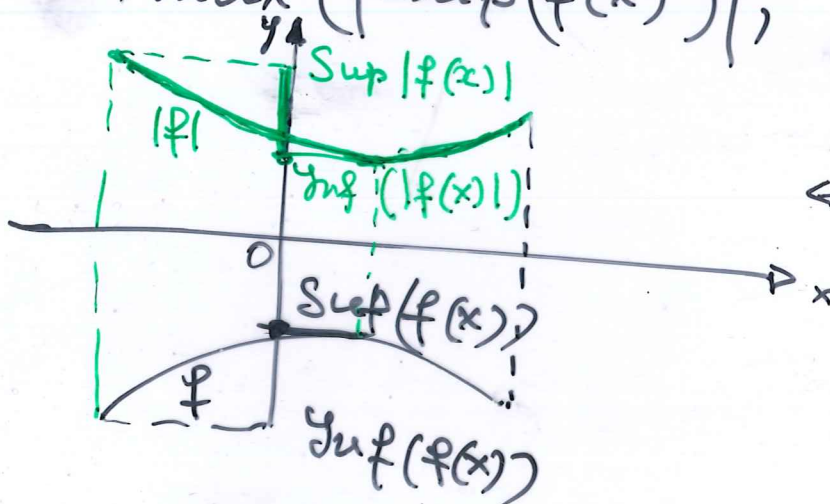 y
Sup |f(x)|
|f|
Inf (|f(x)|)
<
0
x
Sup(f(x))
f
Inf(f(x))